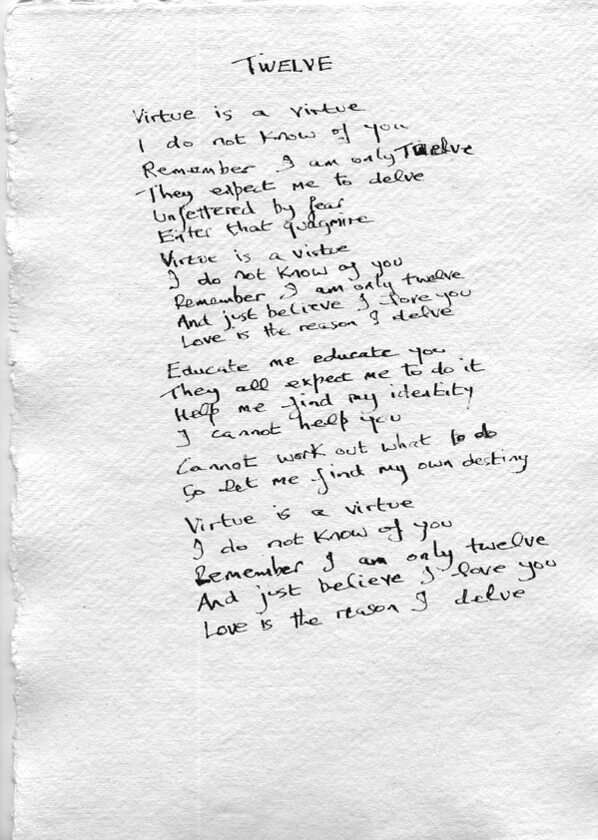 TWELVE
Virtue is a virtue
I do not know of you
Remember I am only Twelve
They expect me to delve
Unfettered by fear
Enter that quagmire
Virtue is a virtue
I do not know of you
Remember I am only twelve
And just believe I love you
Love is the reason I delve
Educate me educate you
They all expect me to do it
Help me find my identity
I cannot help you
Cannot work out what to do
So let me find my own destiny
Virtue is a virtue
I do not know of you
Remember I am only twelve
And just believe I love you
Love is the reason I delve